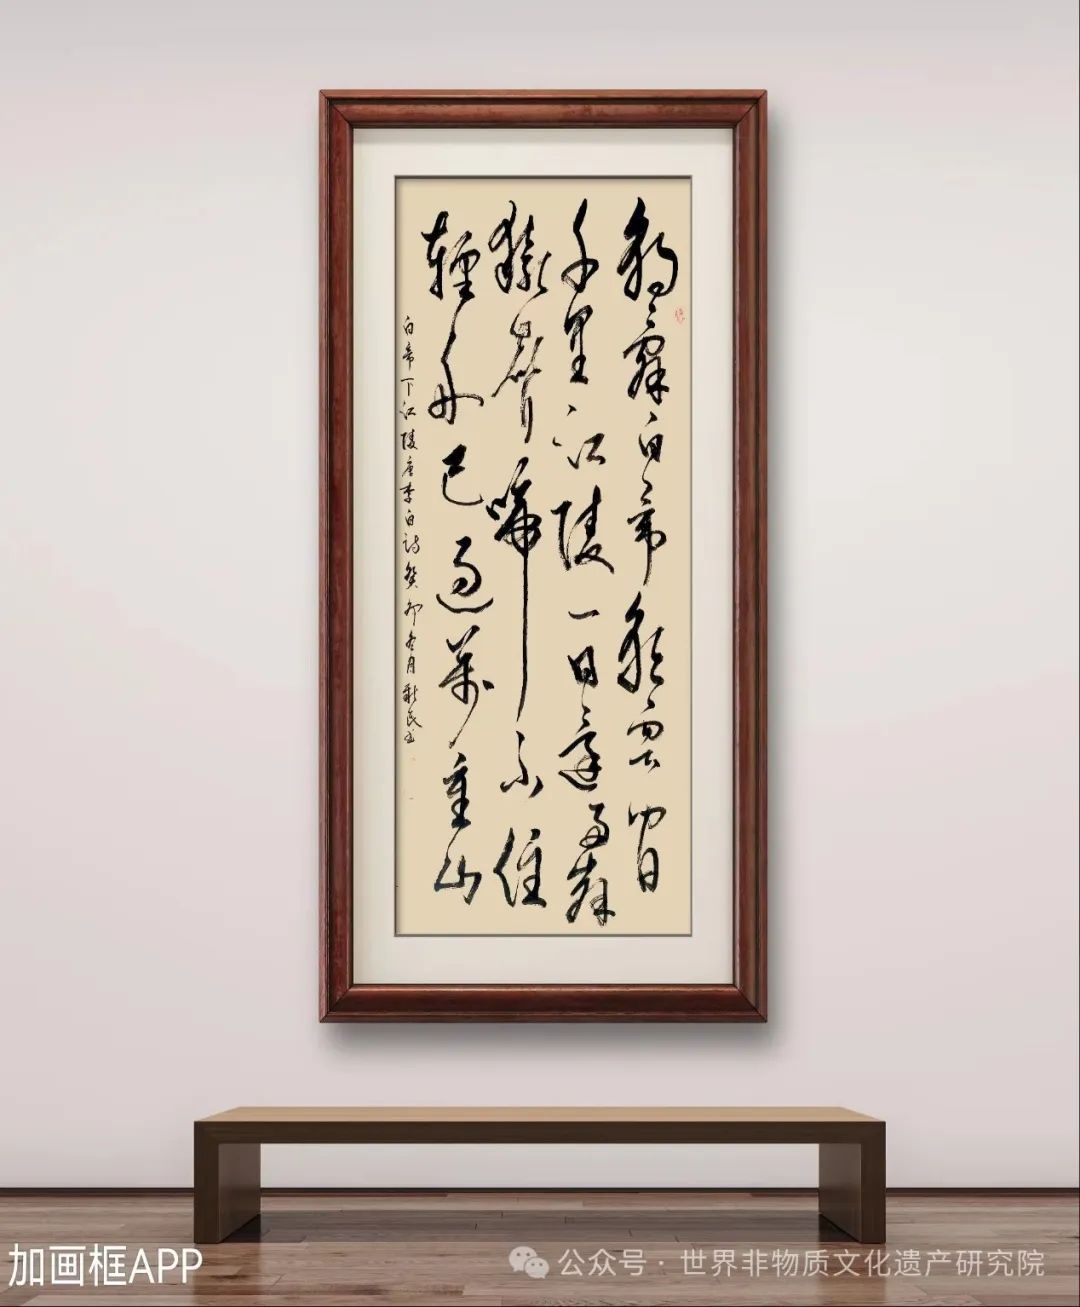 朝辭白帝彩雲間
千里江陵一日還兩岸
猿聲啼不住
輕舟已過萬重山
白帝下江陵唐李白詩癸卯冬月民书
加画框APP
公众号·世界非物质文化遗产研究院